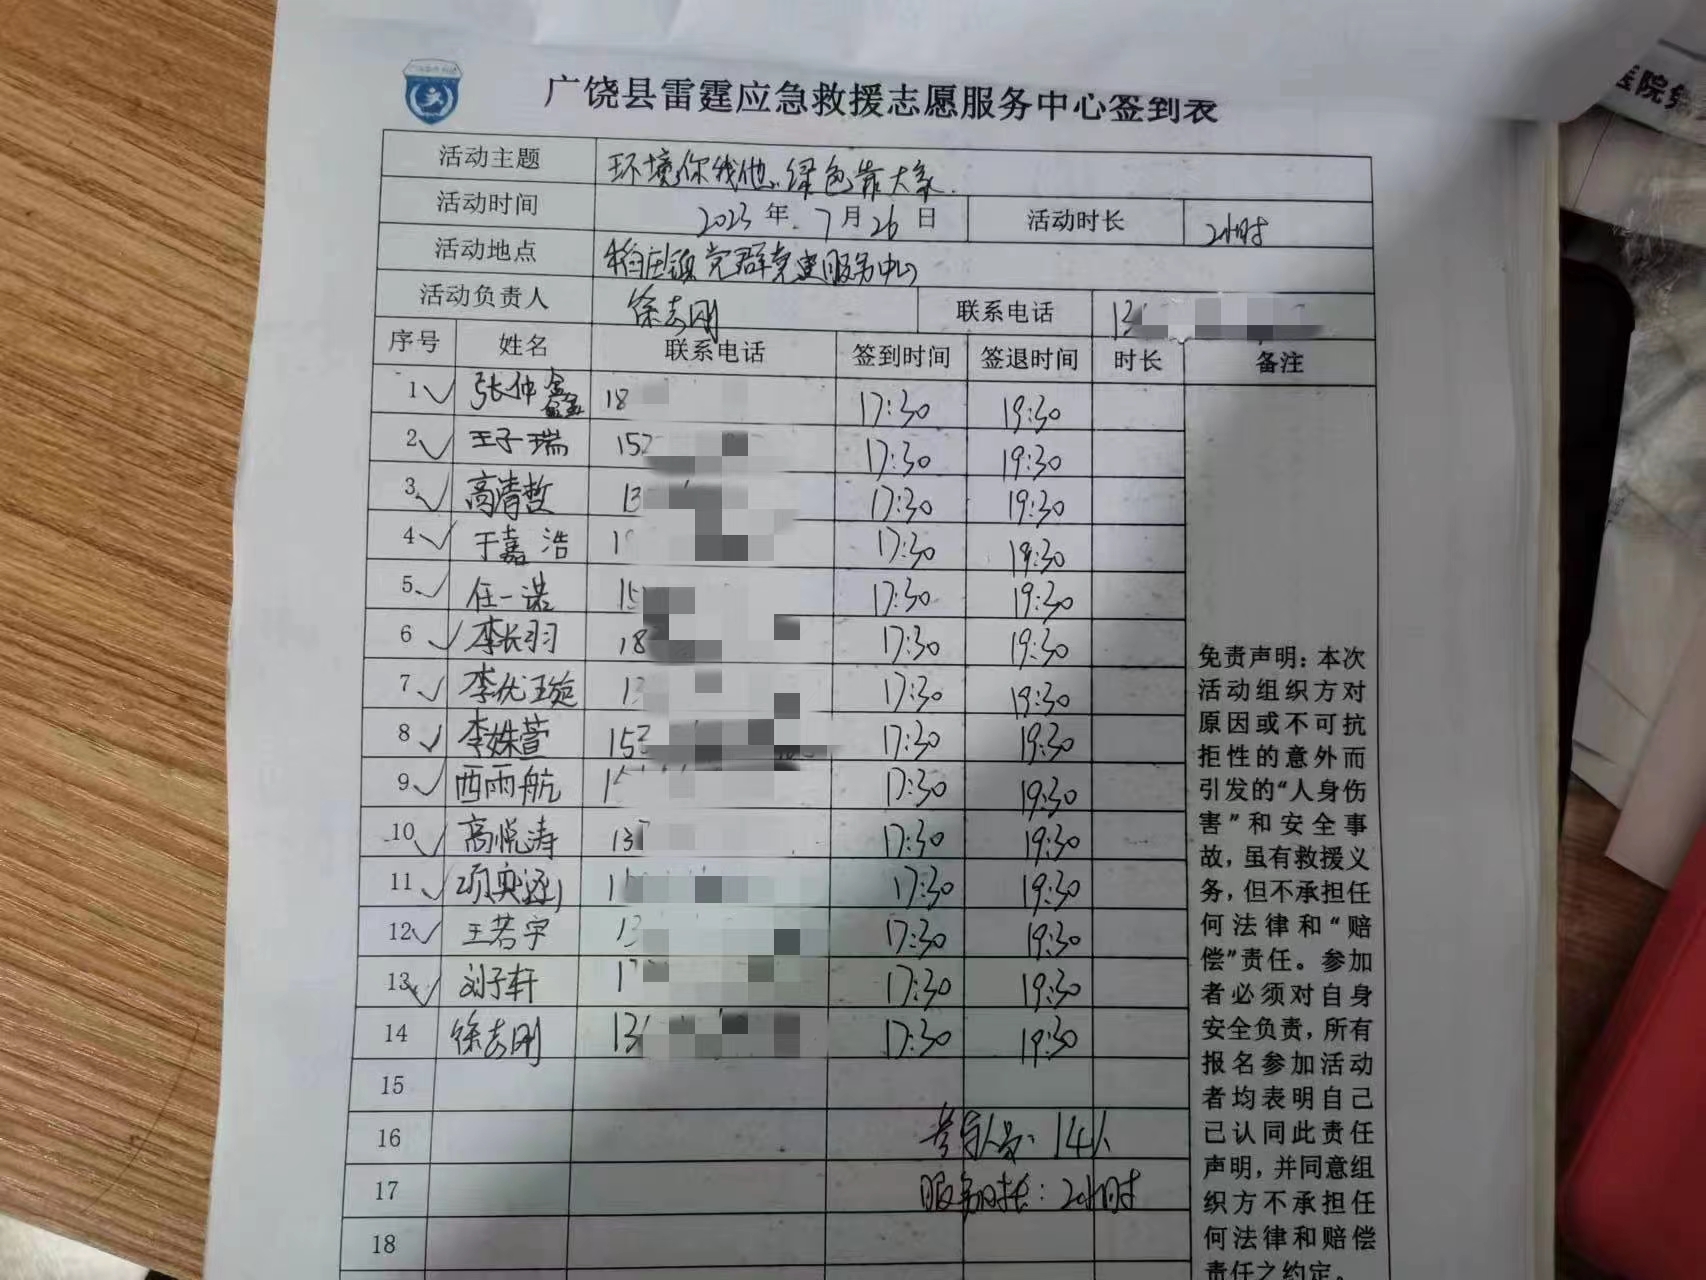 广饶县雷霆应急救援志愿服务中心签到表
活动主题 环境你我他.绿色靠大家.
活动时间 2023年.7月26日 活动时长 2小时
活动地点 稻庄镇党群党建服务中心
活动负责人 徐志刚 联系电话 13
序号 姓名 联系电话 签到时间 签退时间 时长 备注
1 张仲鑫 18 17:30 19:30
2 王子瑞 152 17:30 19:30
3 高清哲 13 17:30 19:30
4 于嘉浩 17:30 19:30
5 任一诺 15 17:30 19:30
6 李长羽 18 17:30 19:30
7 李优璇 13 17:30 19:30
8 李姝萱 152 17:30 19:30
9 西雨航 15 17:30 19:30
10 高悦涛 13 17:30 19:30
11 17:30 19:30
12 王若宇 13 17:30 19:30
13 刘子轩 17:30 19:30
14 徐志刚 13 17:30 19:30
15
16 参与人员: 14人
17 服务时长: 2小时
18
免责声明:本次
活动组织方对
原因或不可抗
拒性的意外而
引发的“人身伤
害”和安全事
故,虽有救援义
务,但不承担任
何法律和“赔
偿”责任。参加
者必须对自身
安全负责,所有
报名参加活动
者均表明自己
已认同此责任
声明,并同意组
织方不承担任
何法律和赔偿
责任之约定。
医院